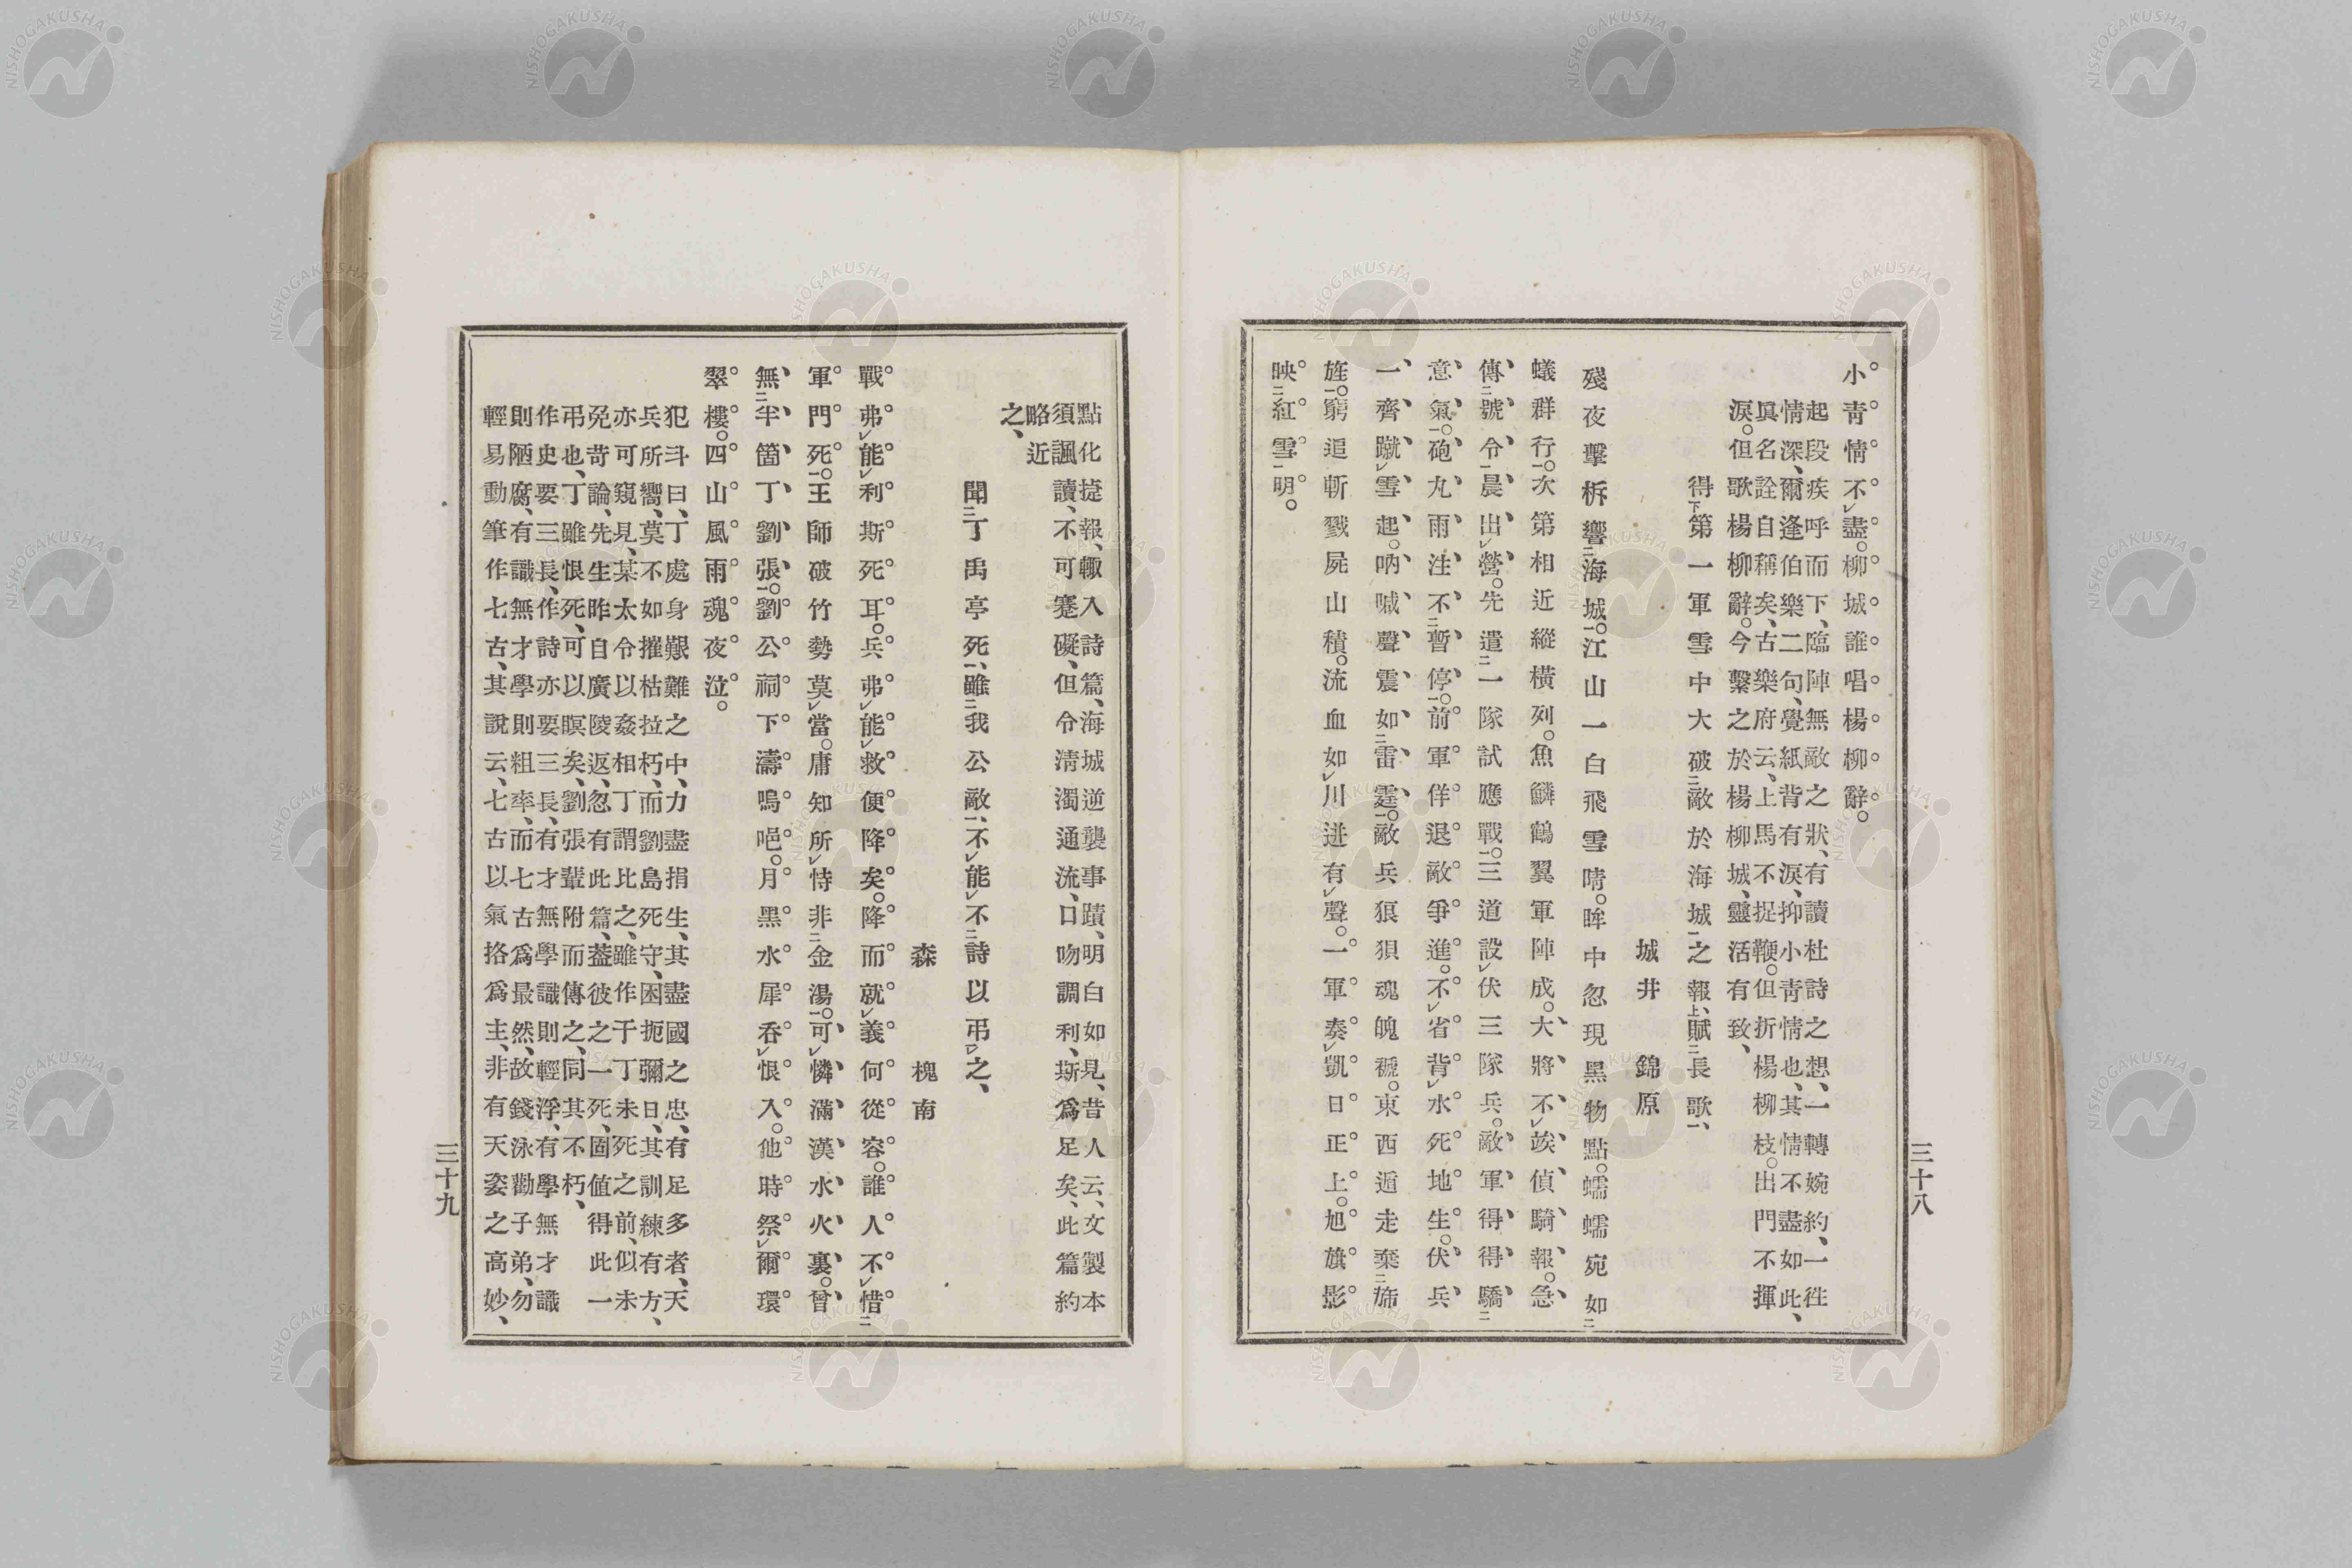 小青情不盡。柳城誰唱楊柳辭。
起段疾呼而下、臨陣無敵之狀、有讀杜詩之想、一轉婉約、一徃
情深、爾逢伯樂二句、覺紙背有淚、抑小青情也、其情不盡如此、
眞名詮自稱矣、古樂府云、上馬不捉鞭。但折楊柳枝。出門不揮
淚。但歌楊柳辭。今繫之於楊柳城、靈活有致、
得下第一軍雪中大破二敵於海城一之報上、賦二長歌一、
城井錦原
殘夜擊柝響二海城一。江山一白飛雪晴。眸中忽現黑物點。蠕蠕宛如二
蟻群行一。次第相近縱橫列。魚鱗鶴翼軍陣成。大將不竢偵騎報。急
傳二號令一晨出營。先遣二一隊試應戰一。三道設伏三隊兵。敵軍得得驕二
意氣一。砲丸雨注不二暫停一。前軍佯退敵爭進。不省背水死地生。伏兵
一齊蹴雪起。吶喊聲震如二雷霆一。敵兵狼狽魂魄褫。東西遁走棄二旆
旌一。窮追斬戮屍山積。流血如川迸有聲。一軍奏凱日正上。旭旗影
映二紅雪一明。
三十八
點化捷報、輙入詩篇、海城逆襲事蹟、明白如見、昔人云、文製本
須諷讀、不可蹇礙、但令淸濁通流、口吻調利、斯爲足矣、此篇約
略近
之、
聞二丁禹亭死一、雖二我公敵一、不能不二詩以弔一レ之、
森槐南
戰弗能利斯死耳。兵弗能救便降矣。降而就義何從容。誰人不惜二
軍門死一。王師破竹勢莫當。庸知所恃非二金湯一。可憐滿漢水火裏。曾
無二半箇丁劉張一。劉公祠下濤嗚咽。月黑水犀呑恨入。他時祭爾環
翠樓。四山風雨魂夜泣。
犯斗曰、丁處身艱難之中、力盡捐生、其盡國之忠、有足多者、天
兵所嚮、莫不如摧枯拉朽、而劉島死守、困扼彌日、其訓練有方、
亦可窺見、某太令以姦相丁謂比之、雖作于丁未死之前、似未
免苛論、先生昨自廣陵返、忽有此篇、葢彼之一死、固値得此一
弔也、丁雖恨死、可以瞑矣、劉張輩附而傳之、同其不朽、
作史要三長、作詩亦要三長、有才無學識則輕浮、有學無才識
則陋腐、有識無才學則粗率、而七古爲最然、故錢泳勸子弟、勿
輕易動筆作七古、其說云、七古以氣挌爲主、非有天姿之高妙、
三十九
NISHOGAKUSHA